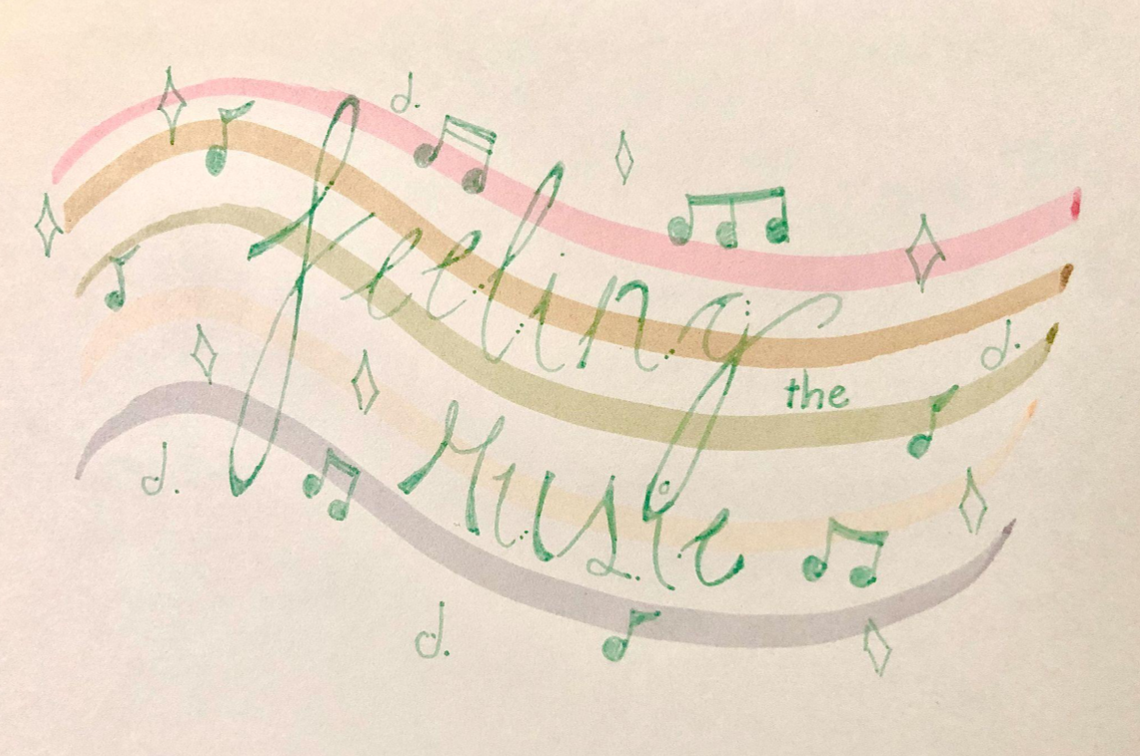 feeling
the
Music